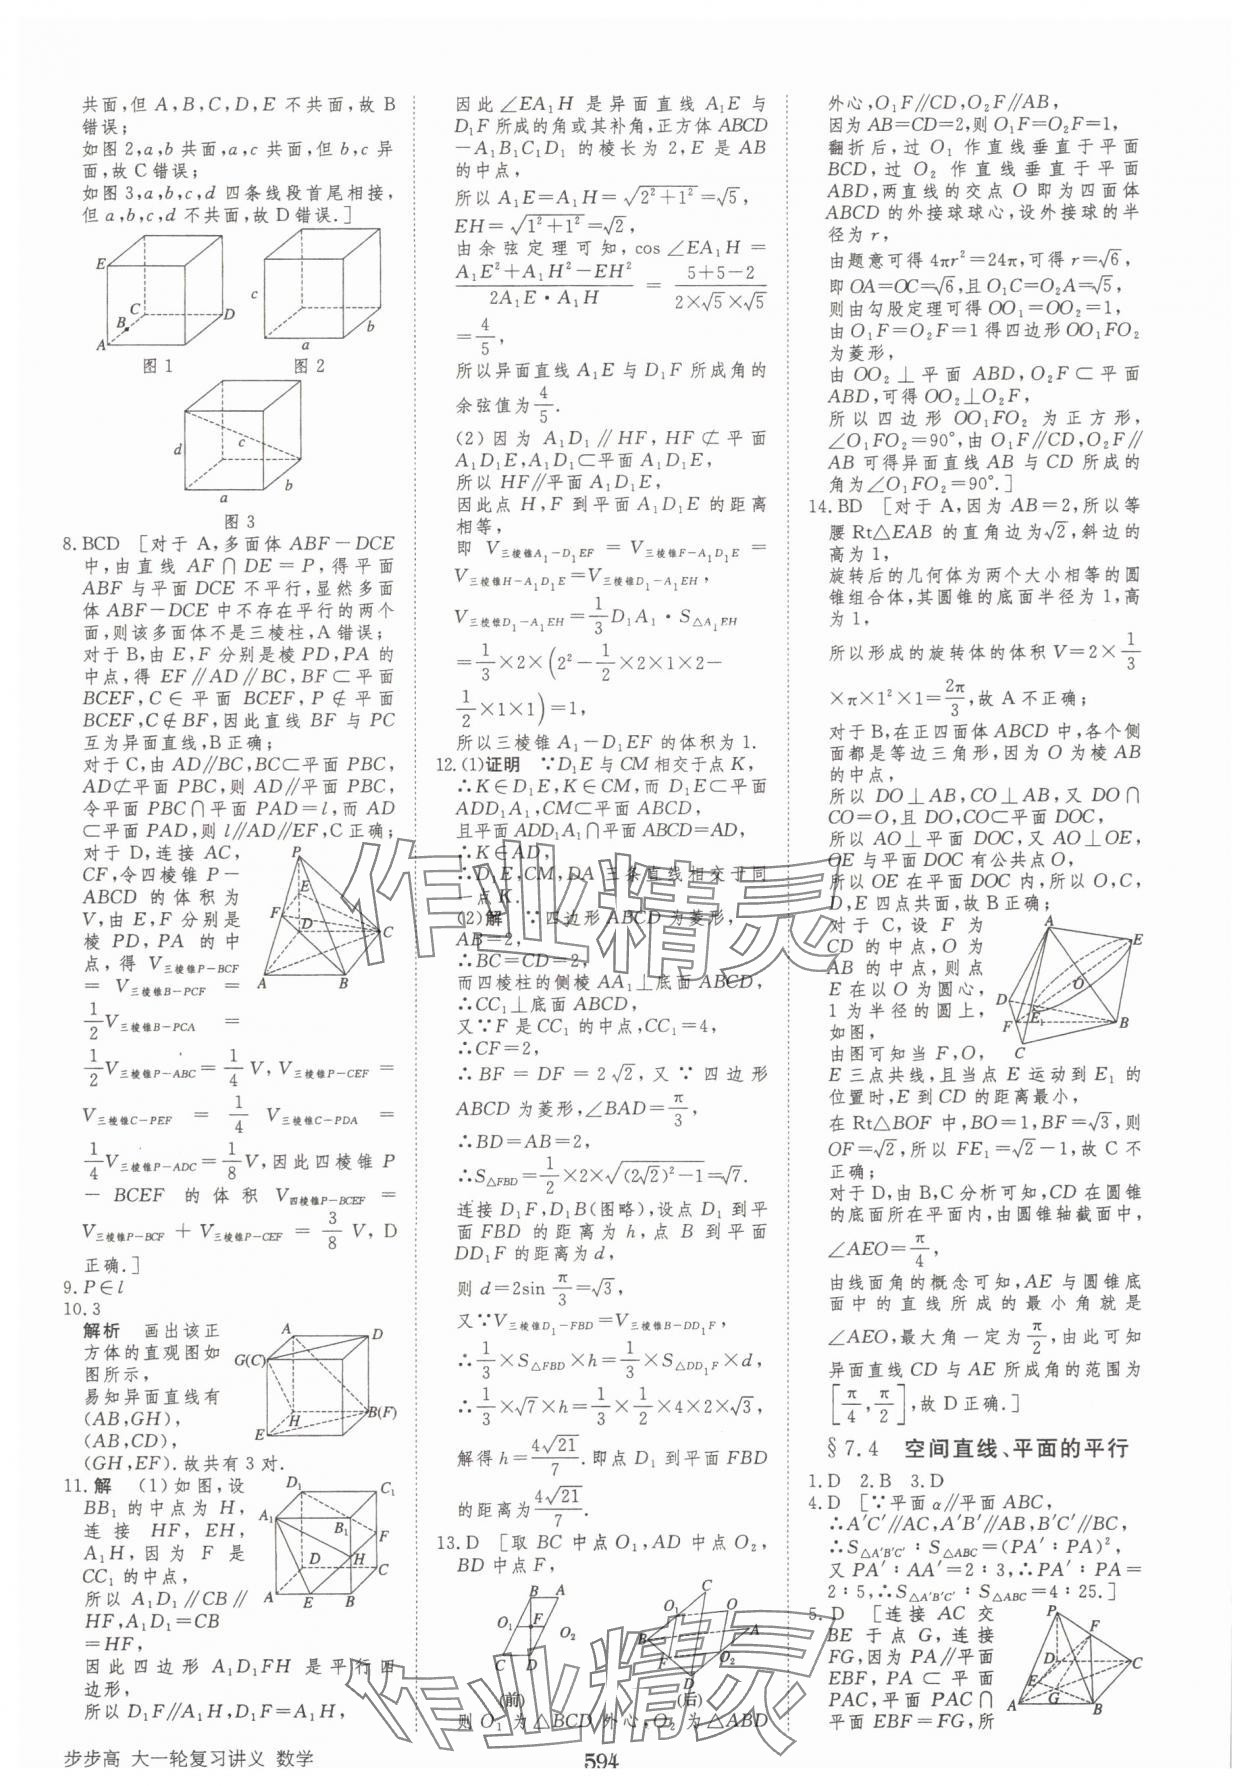 共面,但 A,B,C,D,E 不共面,故 B
错误;
如图 2,a,b 共面,a,c 共面,但 b,c 异
面,故 C 错误;
如图 3,a,b,c,d 四条线段首尾相接,
但 a,b,c,d 不共面,故 D 错误.]
E
C
B
D
A
图 1
c
b
a
图 2
d
c
b
a
图 3
8. BCD [对于 A,多面体 ABF-DCE
中,由直线 AF∩DE=P,得平面
ABF 与平面 DCE 不平行,显然多面
体 ABF-DCE 中不存在平行的两个
面,则该多面体不是三棱柱,A 错误;
对于 B,由 E,F 分别是棱 PD,PA 的
中点,得 EF∥AD∥BC,BF⊂平面
BCEF,C∈平面 BCEF,P∉平面
BCEF,C∉BF,因此直线 BF 与 PC
互为异面直线,B 正确;
对于 C,由 AD∥BC,BC⊂平面 PBC,
AD⊄平面 PBC,则 AD∥平面 PBC,
令平面 PBC∩平面 PAD=l,而 AD
⊂平面 PAD,则 l∥AD∥EF,C 正确;
对于 D,连接 AC,
CF,令四棱锥 P-
ABCD 的体积为
V,由 E,F 分别是
棱 PD,PA 的中
点,得 V三棱锥P-BCF
= V三棱锥B-PCF =
1/2 V三棱锥B-PCA =
1/2 V三棱锥P-ABC = 1/4 V, V三棱锥P-CEF =
V三棱锥C-PEF = 1/4 V三棱锥C-PDA =
1/4 V三棱锥P-ADC = 1/8 V,因此四棱锥 P
-BCEF 的体积 V四棱锥P-BCEF =
V三棱锥P-BCF + V三棱锥P-CEF = 3/8 V, D
正确.]
P
E
F
D
C
A
B
9. P∈l
10. 3
解析 画出该正
方体的直观图如
图所示,
易知异面直线有
(AB,GH),
(AB,CD),
(GH,EF).故共有 3 对.
A
D
G(C)
H
B(F)
E
11. 解 (1)如图,设
BB₁ 的中点为 H,
连接 HF,EH,
A₁H,因为 F 是
CC₁ 的中点,
所以 A₁D₁∥CB∥
HF,A₁D₁=CB
=HF,
因此四边形 A₁D₁FH 是平行四
边形,
所以 D₁F∥A₁H,D₁F=A₁H,
D₁
C₁
A₁
B₁
F
H
D
C
A
E
B
因此∠EA₁H 是异面直线 A₁E 与
D₁F 所成的角或其补角,正方体 ABCD
-A₁B₁C₁D₁ 的棱长为 2,E 是 AB
的中点,
所以 A₁E=A₁H=√(2²+1²)=√5,
EH=√(1²+1²)=√2,
由余弦定理可知,cos∠EA₁H=
(A₁E²+A₁H²-EH²)/(2A₁E·A₁H) = (5+5-2)/(2×√5×√5)
=4/5,
所以异面直线 A₁E 与 D₁F 所成角的
余弦值为 4/5.
(2)因为 A₁D₁∥HF,HF⊄平面
A₁D₁E,A₁D₁⊂平面 A₁D₁E,
所以 HF∥平面 A₁D₁E,
因此点 H,F 到平面 A₁D₁E 的距离
相等,
即 V三棱锥A₁-D₁EF = V三棱锥F-A₁D₁E =
V三棱锥H-A₁D₁E = V三棱锥D₁-A₁EH,
V三棱锥D₁-A₁EH = 1/3 D₁A₁·S△A₁EH
=1/3×2×(2²-1/2×2×1-1/2×2×1-
1/2×1×1)=1,
所以三棱锥 A₁-D₁EF 的体积为 1.
12. (1)证明 ∵D₁E 与 CM 相交于点 K,
∴K∈D₁E,K∈CM,而 D₁E⊂平面
ADD₁A₁,CM⊂平面 ABCD,
且平面 ADD₁A₁∩平面 ABCD=AD,
∴K∈AD,
∴D₁E,CM,DA 三条直线相交于同
一点 K.
(2)解 ∵四边形 ABCD 为菱形,
AB=2,
∴BC=CD=2,
而四棱柱的侧棱 AA₁⊥底面 ABCD,
∴CC₁⊥底面 ABCD,
又∵F 是 CC₁ 的中点,CC₁=4,
∴CF=2,
∴BF=DF=2√2,又∵四边形
ABCD 为菱形,∠BAD=π/3,
∴BD=AB=2,
∴S△FBD=1/2×2×√((2√2)²-1)=√7.
连接 D₁F,D₁B(图略),设点 D₁ 到平
面 FBD 的距离为 h,点 B 到平面
DD₁F 的距离为 d,
则 d=2sin π/3=√3,
又∵V三棱锥D₁-FBD=V三棱锥B-DD₁F,
∴1/3×S△FBD×h=1/3×S△DD₁F×d,
∴1/3×√7×h=1/3×1/2×4×2×√3,
解得 h=4√21/7.即点 D₁ 到平面 FBD
的距离为 4√21/7.
13. D [取 BC 中点 O₁,AD 中点 O₂,
BD 中点 F,
B
A
O₁
F
O₂
C
D
(前)
C
O₁
O
A
B
F
O₂
D
(后)
则 O₁ 为△BCD 外心,O₂ 为△ABD
外心,O₁F∥CD,O₂F∥AB,
因为 AB=CD=2,则 O₁F=O₂F=1,
翻折后,过 O₁ 作直线垂直于平面
BCD,过 O₂ 作直线垂直于平面
ABD,两直线的交点 O 即为四面体
ABCD 的外接球球心,设外接球的半
径为 r,
由题意可得 4πr²=24π,可得 r=√6,
即 OA=OC=√6,且 O₁C=O₂A=√5,
则由勾股定理可得 OO₁=OO₂=1,
由 O₁F=O₂F=1 得四边形 OO₁FO₂
为菱形,
由 OO₂⊥平面 ABD,O₂F⊂平面
ABD,可得 OO₂⊥O₂F,
所以四边形 OO₁FO₂ 为正方形,
∠O₁FO₂=90°,由 O₁F∥CD,O₂F∥
AB 可得异面直线 AB 与 CD 所成的
角为∠O₁FO₂=90°.]
14. BD [对于 A,因为 AB=2,所以等
腰 Rt△EAB 的直角边为√2,斜边的
高为 1,
旋转后的几何体为两个大小相等的圆
锥组合体,其圆锥的底面半径为 1,高
为 1,
所以形成的旋转体的体积 V=2×1/3
×π×1²×1=2π/3,故 A 不正确;
对于 B,在正四面体 ABCD 中,各个侧
面都是等边三角形,因为 O 为棱 AB
的中点,
所以 DO⊥AB,CO⊥AB,又 DO∩
CO=O,且 DO,CO⊂平面 DOC,
所以 AO⊥平面 DOC,又 AO⊥OE,
OE 与平面 DOC 有公共点 O,
所以 OE 在平面 DOC 内,所以 O,C,
D,E 四点共面,故 B 正确;
对于 C,设 F 为
CD 的中点,O 为
AB 的中点,则点
E 在以 O 为圆心,
1 为半径的圆上,
如图,
由图可知当 F,O,
E 三点共线,且当点 E 运动到 E₁ 的
位置时,E 到 CD 的距离最小,
在 Rt△BOF 中,BO=1,BF=√3,则
OF=√2,所以 FE₁=√2-1,故 C 不
正确;
对于 D,由 B,C 分析可知,CD 在圆锥
的底面所在平面内,由圆锥轴截面中,
∠AEO=π/4,
由线面角的概念可知,AE 与圆锥底
面中的直线所成的最小角就是
∠AEO,最大角一定为 π/2,由此可知
异面直线 CD 与 AE 所成角的范围为
[π/4, π/2],故 D 正确.]
A
E
O
D
F
E₁
B
C
§7.4 空间直线、平面的平行
1. D 2. B 3. D
4. D [∵平面 α∥平面 ABC,
∴A'C'∥AC,A'B'∥AB,B'C'∥BC,
∴S△A'B'C' : S△ABC=(PA' : PA)²,
又 PA' : AA'=2 : 3,∴PA' : PA=
2 : 5,∴S△A'B'C' : S△ABC=4 : 25.]
5. D [连接 AC 交
BE 于点 G,连接
FG,因为 PA∥平面
EBF,PA⊂平面
PAC,平面 PAC∩
平面 EBF=FG,所
P
F
D
E
C
G
A
B
作业精灵
作业精灵
步步高 大一轮复习讲义 数学
594